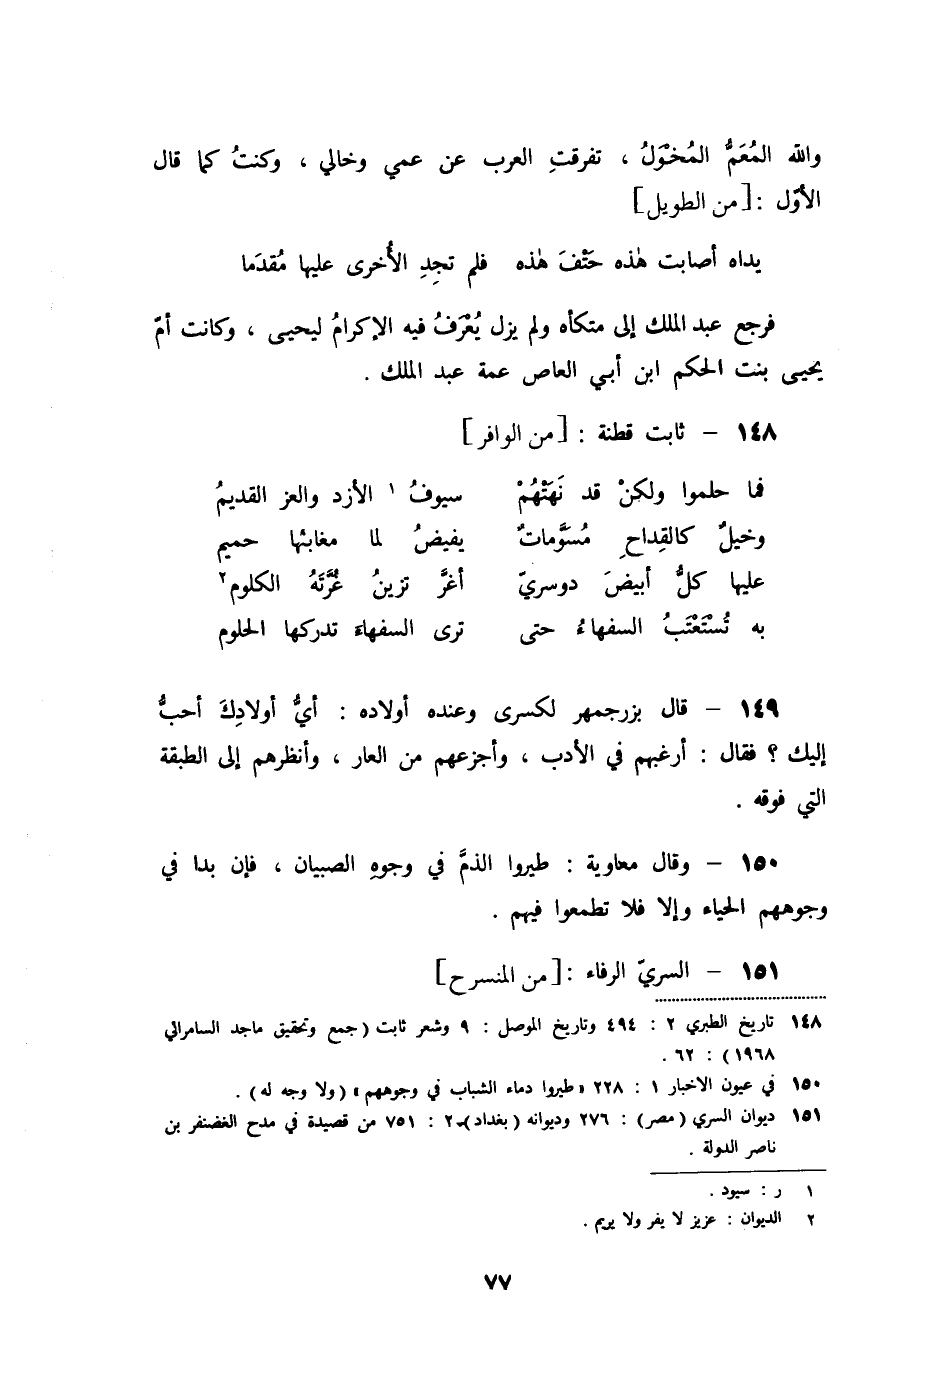 والله المُعَمُّ المُخْوَلُ ، تفرقتِ العرب عن عمي وخالي ، وكنتُ كما قال
الأوّل : [من الطويل]
يداه أصابت هٰذه حَتْفَ هٰذه فلم تجِدِ الأُخرى عليها مُقدَما
فرجع عبد الملك إلى متكأه ولم يزل يُعْرَفُ فيه الإكرامُ ليحيى ، وكانت أمّ
يحيى بنت الحكم ابن أبي العاص عمة عبد الملك .
١٤٨ – ثابت قطنة : [من الوافر]
فما حلموا ولكنْ قد نَهَتْهُمْ سيوفُ ١ الأزد والعز القديمُ
وخيلٌ كالقِداحِ مُسَوَّماتٌ يفيضُ لما مغابنُها حميم
عليها كلُّ أبيضَ دوسريّ أغرَّ تزينُ غُرَّتَهُ الكلوم٢
به تُسْتَعْتَبُ السفهاءُ حتى ترى السفهاءَ تدركها الحلوم
١٤٩ – قال بزرجمهر لكسرى وعنده أولاده : أيُّ أولادِكَ أحبُّ
إليك ؟ فقال : أرغبهم في الأدب ، وأجزعهم من العار ، وأنظرهم إلى الطبقة
التي فوقه .
١٥٠ – وقال معاوية : طيروا الذمَّ في وجوهِ الصبيان ، فإن بدا في
وجوههم الحياء وإلا فلا تطمعوا فيهم .
١٥١ – السريّ الرفاء : [من المنسرح]
١٤٨ تاريخ الطبري ٢ : ٤٩٤ وتاريخ الموصل : ٩ وشعر ثابت (جمع وتحقيق ماجد السامرائي
١٩٦٨) : ٦٢ .
١٥٠ في عيون الاخبار ١ : ٢٢٨ «طيروا دماء الشباب في وجوههم» (ولا وجه له) .
١٥١ ديوان السري (مصر) : ٢٧٦ وديوانه (بغداد) ـ ٢ : ٧٥١ من قصيدة في مدح الغضنفر بن
ناصر الدولة .
١ ر : سيود .
٢ الديوان : عزيز لا يفر ولا يريم .
٧٧